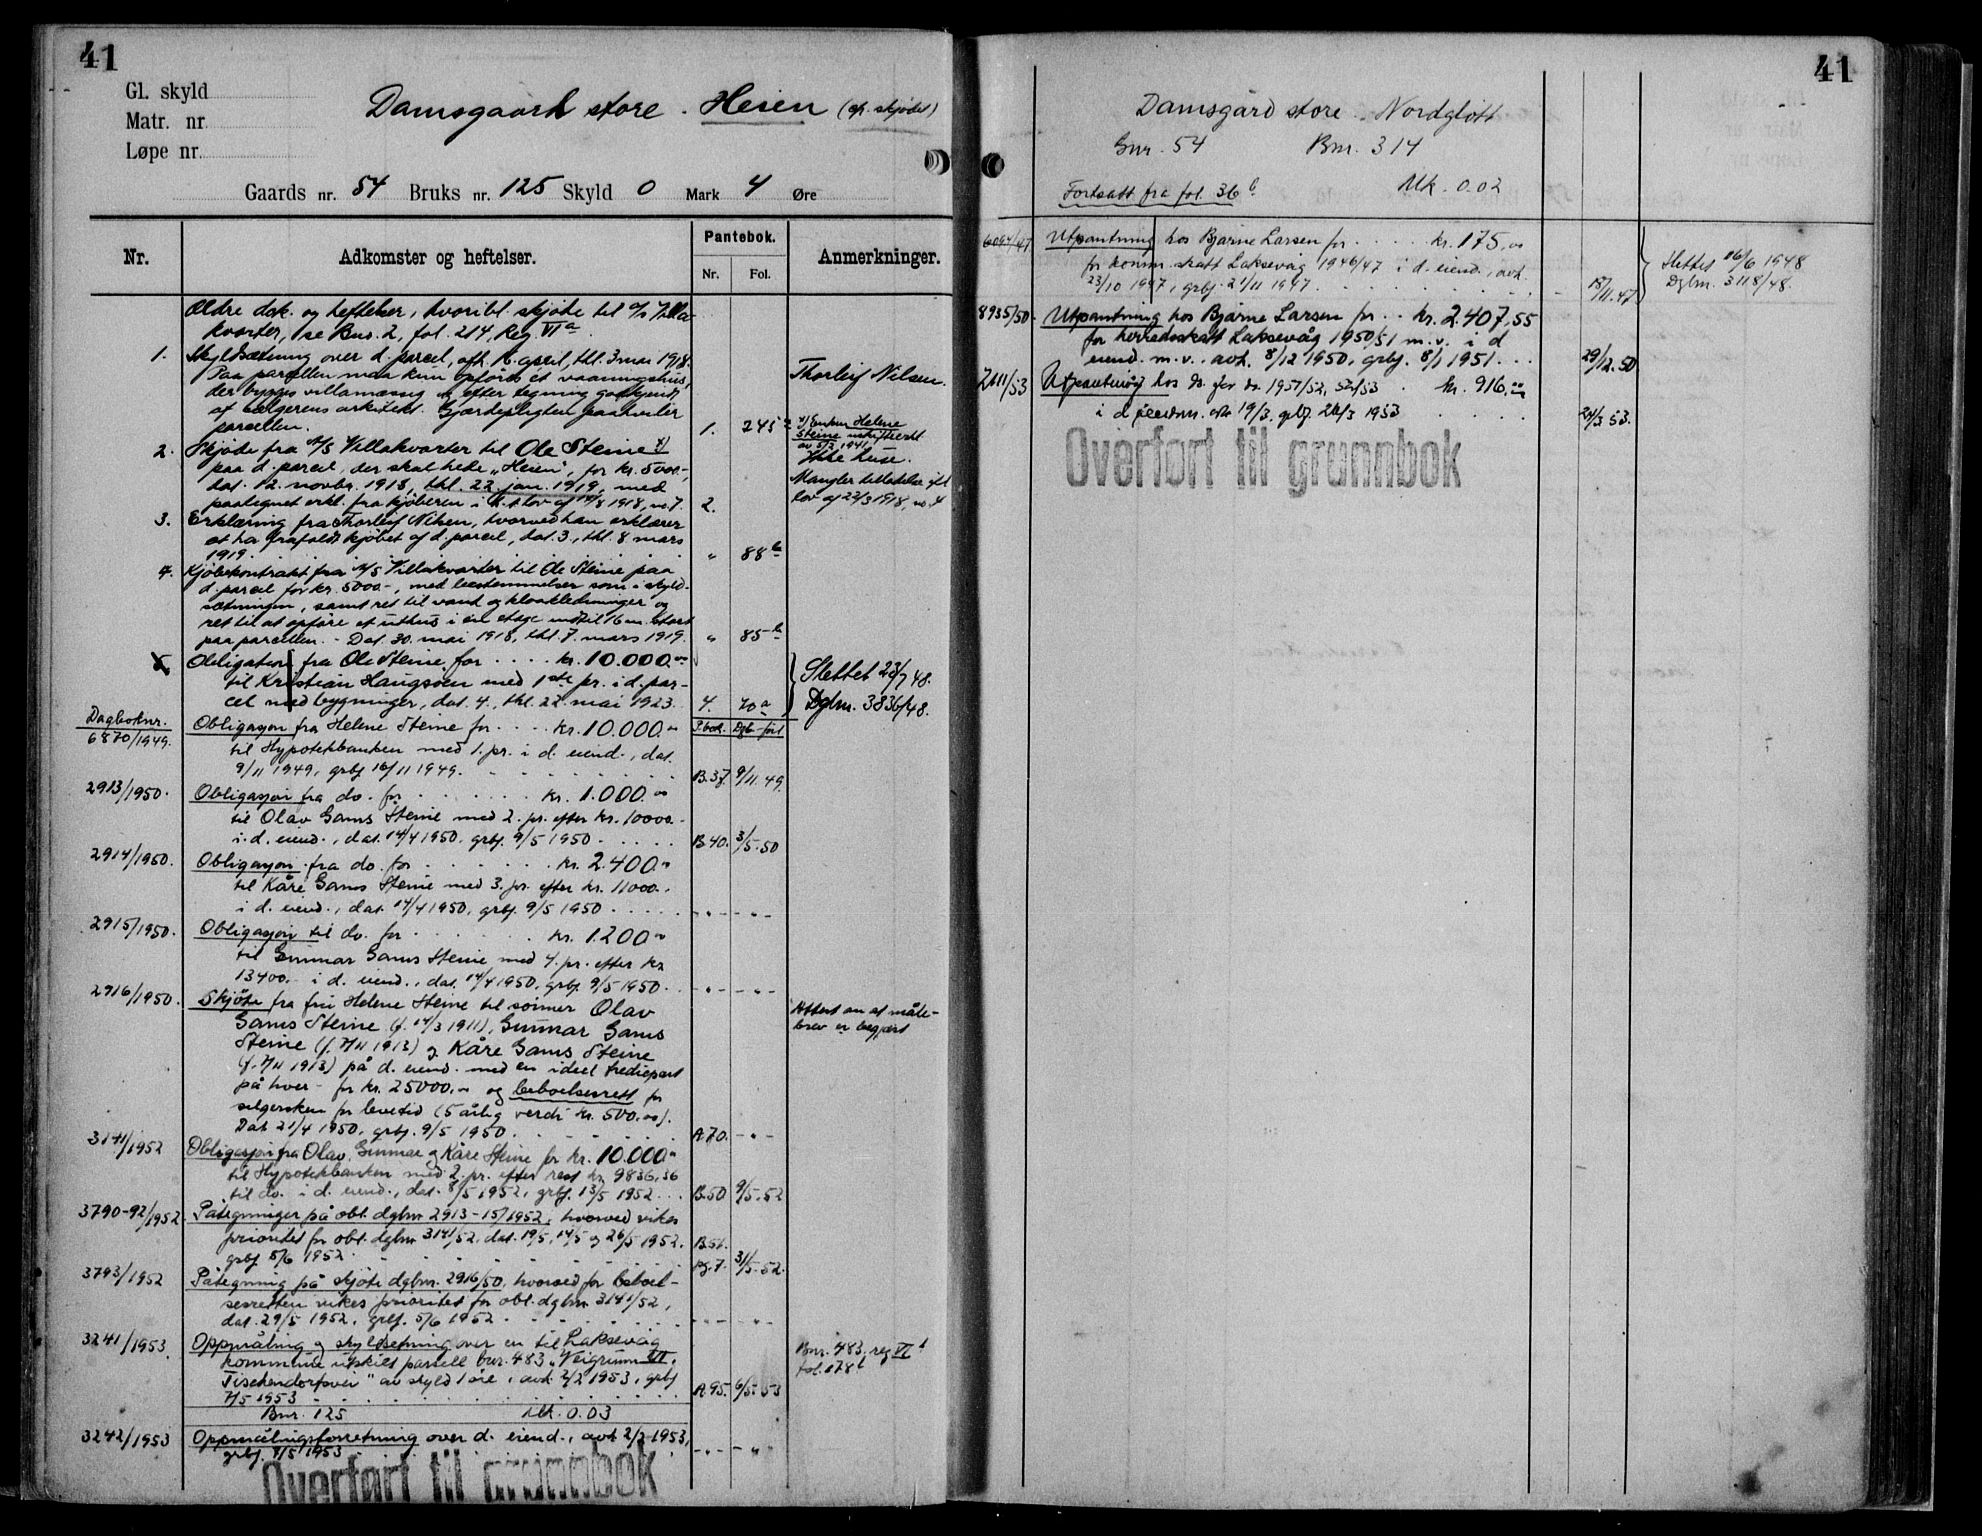 41
Gl. skyld
Matr. nr
Løpe nr.
Damsgaard store. Heien (efr. skjødet)
Gaards nr. 54 Bruks nr. 125 Skyld 0 Mark 4 Øre
Nr.
Adkomster og heftelser.
Pantebok.
Nr. Fol.
Anmerkninger.
Ældre dok. og heftelser, hvoribl. skjøte til A/S Villa-
kvarter, se Bnr. 2, fol. 214, Reg. VI a
1. Skyldsætning over d. parcel, afh. april, thl. 3 mai 1918.
Paa parcellen maa kun opføres et vaaningshus,
der bygges villamæssig efter tegning godkjendt
af sælgerens arkitekt. Gjærdepligten paahviler
parcellen. 1. 245
Thorleif Nilsen.
2. Skjøde fra A/S Villakvarter til Ole Steine x)
paa d. parcel, der skal hete „Heien", for kr. 5000.-
dat. 12. novbr. 1918, thl. 22. jan. 1919, med
paategnet erkl. fra kjøberen i h.t. lov af 14/8 1918, no 7. 2.
x) Enken Helene
Steine uskifteatt.
av 5/3 1941.
Ikke huse.
Mangler tilladelse efter
lov af 22/3 1918, no 4
3. Erklæring fra Thorleif Nilsen, hvorved han erklærer
at ha frafaldt kjøbet af d. parcel, dat. 3, thl. 8 mars
1919. " 88 b
4. Kjøbekontrakt fra A/S Villakvarter til Ole Steine paa
d. parcel for kr. 5000.-, med bestemmelser som i skyld-
sætningen, samt ret til vand og kloakledninger og
ret til at opføre et uthus i én etage indtil 16 m. stort
paa parcellen. - Dat. 30. mai 1918, thl. 7. mars 1919. " 85 b
5. Obligation fra Ole Steine for kr. 10.000.00
til Kristian Haugsøen med 1ste pr. i d. par-
cel med bygninger, dat. 4, thl. 22. mai 1923. 4. 70 a
Slettet 23/7 48.
Dgbnr. 3836/48.
Dagboknr. 6870/1949. Obligasjon fra Helene Steine for kr. 10.000.00
P.bok. Dgb-ført
til Hypotekbanken med 1. pr. i d. eiend., dat.
9/11 1949, grbf 16/11 1949. B.37. 9/11.49.
2913/1950. Obligasjon fra do. for kr. 1.000.00
til Olav Gams Steine med 2. pr. efter kr. 10000.-
i d. eiend., dat. 14/4 1950, grbf. 9/5 1950 B.40. 3/5.50
2914/1950. Obligasjon fra do. for kr. 2.400.00
til Kåre Gams Steine med 3. pr. efter kr. 11000.-
i d. eiend., dat. 14/4 1950, grbf. 9/5 1950 -"- -"-
2915/1950. Obligasjon til do. for kr. 1.200.00
til Gunnar Gams Steine med 4. pr. efter kr.
13400.- i d. eiend., dat. 14/4 1950, grbf 9/5 1950. -"- -"-
2916/1950. Skjøte fra fru Helene Steine til sønner Olav
Gams Steine (f. 14/3 1911), Gunnar Gams
Steine (f. 7/11 1913) og Kåre Gams Steine
(f. 7/11 1913) på d. eiend. med en ideel trediepart
på hver - for kr. 25000.00 og beboelsesrett for
selgersken for levetid (5 årlig verdi kr. 500.00).
Dat 21/4 1950, grbf. 9/5 1950. A.70. -"-
Attest om at måle-
brev er begjært
3141/1952 Obligasjon fra Olav, Gunnar og Kåre Steine for kr. 10.000.00
til Hypotekbanken med 2. pr. efter rest kr. 9836,36
til do. i d. eiend., dat. 8/5 1952, grbf. 13/5 1952. B.50 9/5.52
3790-92/1952. Påtegninger på obl. dgbnr 2913-15/1952, hvorved vikes
prioritet for obl. dgbnr 3141/52, dat. 19/5, 14/5 og 26/5 1952,
grbf 5/6 1952 B.51. pg. 7. 31/5.52.
3793/1952 Påtegning på skjøte dgbnr. 2916/50, hvorved for beboel-
sesretten vikes prioritet for obl. dgbnr 3141/52,
dat. 29/5 1952, grbf. 5/6 1952. -"- "
3241/1953. Oppmåling og skyldsetning over en til Laksevåg
kommune utskilt parsell bnr. 483 „Veigrunn VII,
Tischendorfsvei" av skyld 1 øre, avh. 2/2 1953, grbf
7/5 1953 A.95. 6/5.53
Bnr. 483, reg VI
fol. 178 b
Bnr. 125 Mk. 0.03
3242/1953 Oppmålingsforretning over d. eiend., avh 2/2 1953,
grbf. 7/5 1953 -"- -"-
Overført til grunnbok
41
Damsgård store. Nordgløtt
Gnr. 54 Bnr. 314
Fortsatt fra fol. 36 b Mk. 0.02
6094/47 Utpantning hos Bjarne Larsen for kr. 175,00
for komm. skatt Laksevåg 1946/47 i d. eiend., avh.
23/10 1947, grbf. 21/11 1947. 18/11.47
Slettet 16/6 1948
Dgbnr. 3118/48.
8935/50. Utpantning hos Bjarne Larsen for kr. 2.407,55
for herredsskatt Laksevåg 1950/51 m.v. i d
eiend. m.v., avh. 8/12 1950, grbf. 8/1 1951. 29/12.50
2111/53 Utpantning hos ds. for do. 1951/52, 52/53 kr. 916.00
i d. eiendom. avh 19/3. grbf. 26/3 1953 24/3 53.
Overført til grunnbok